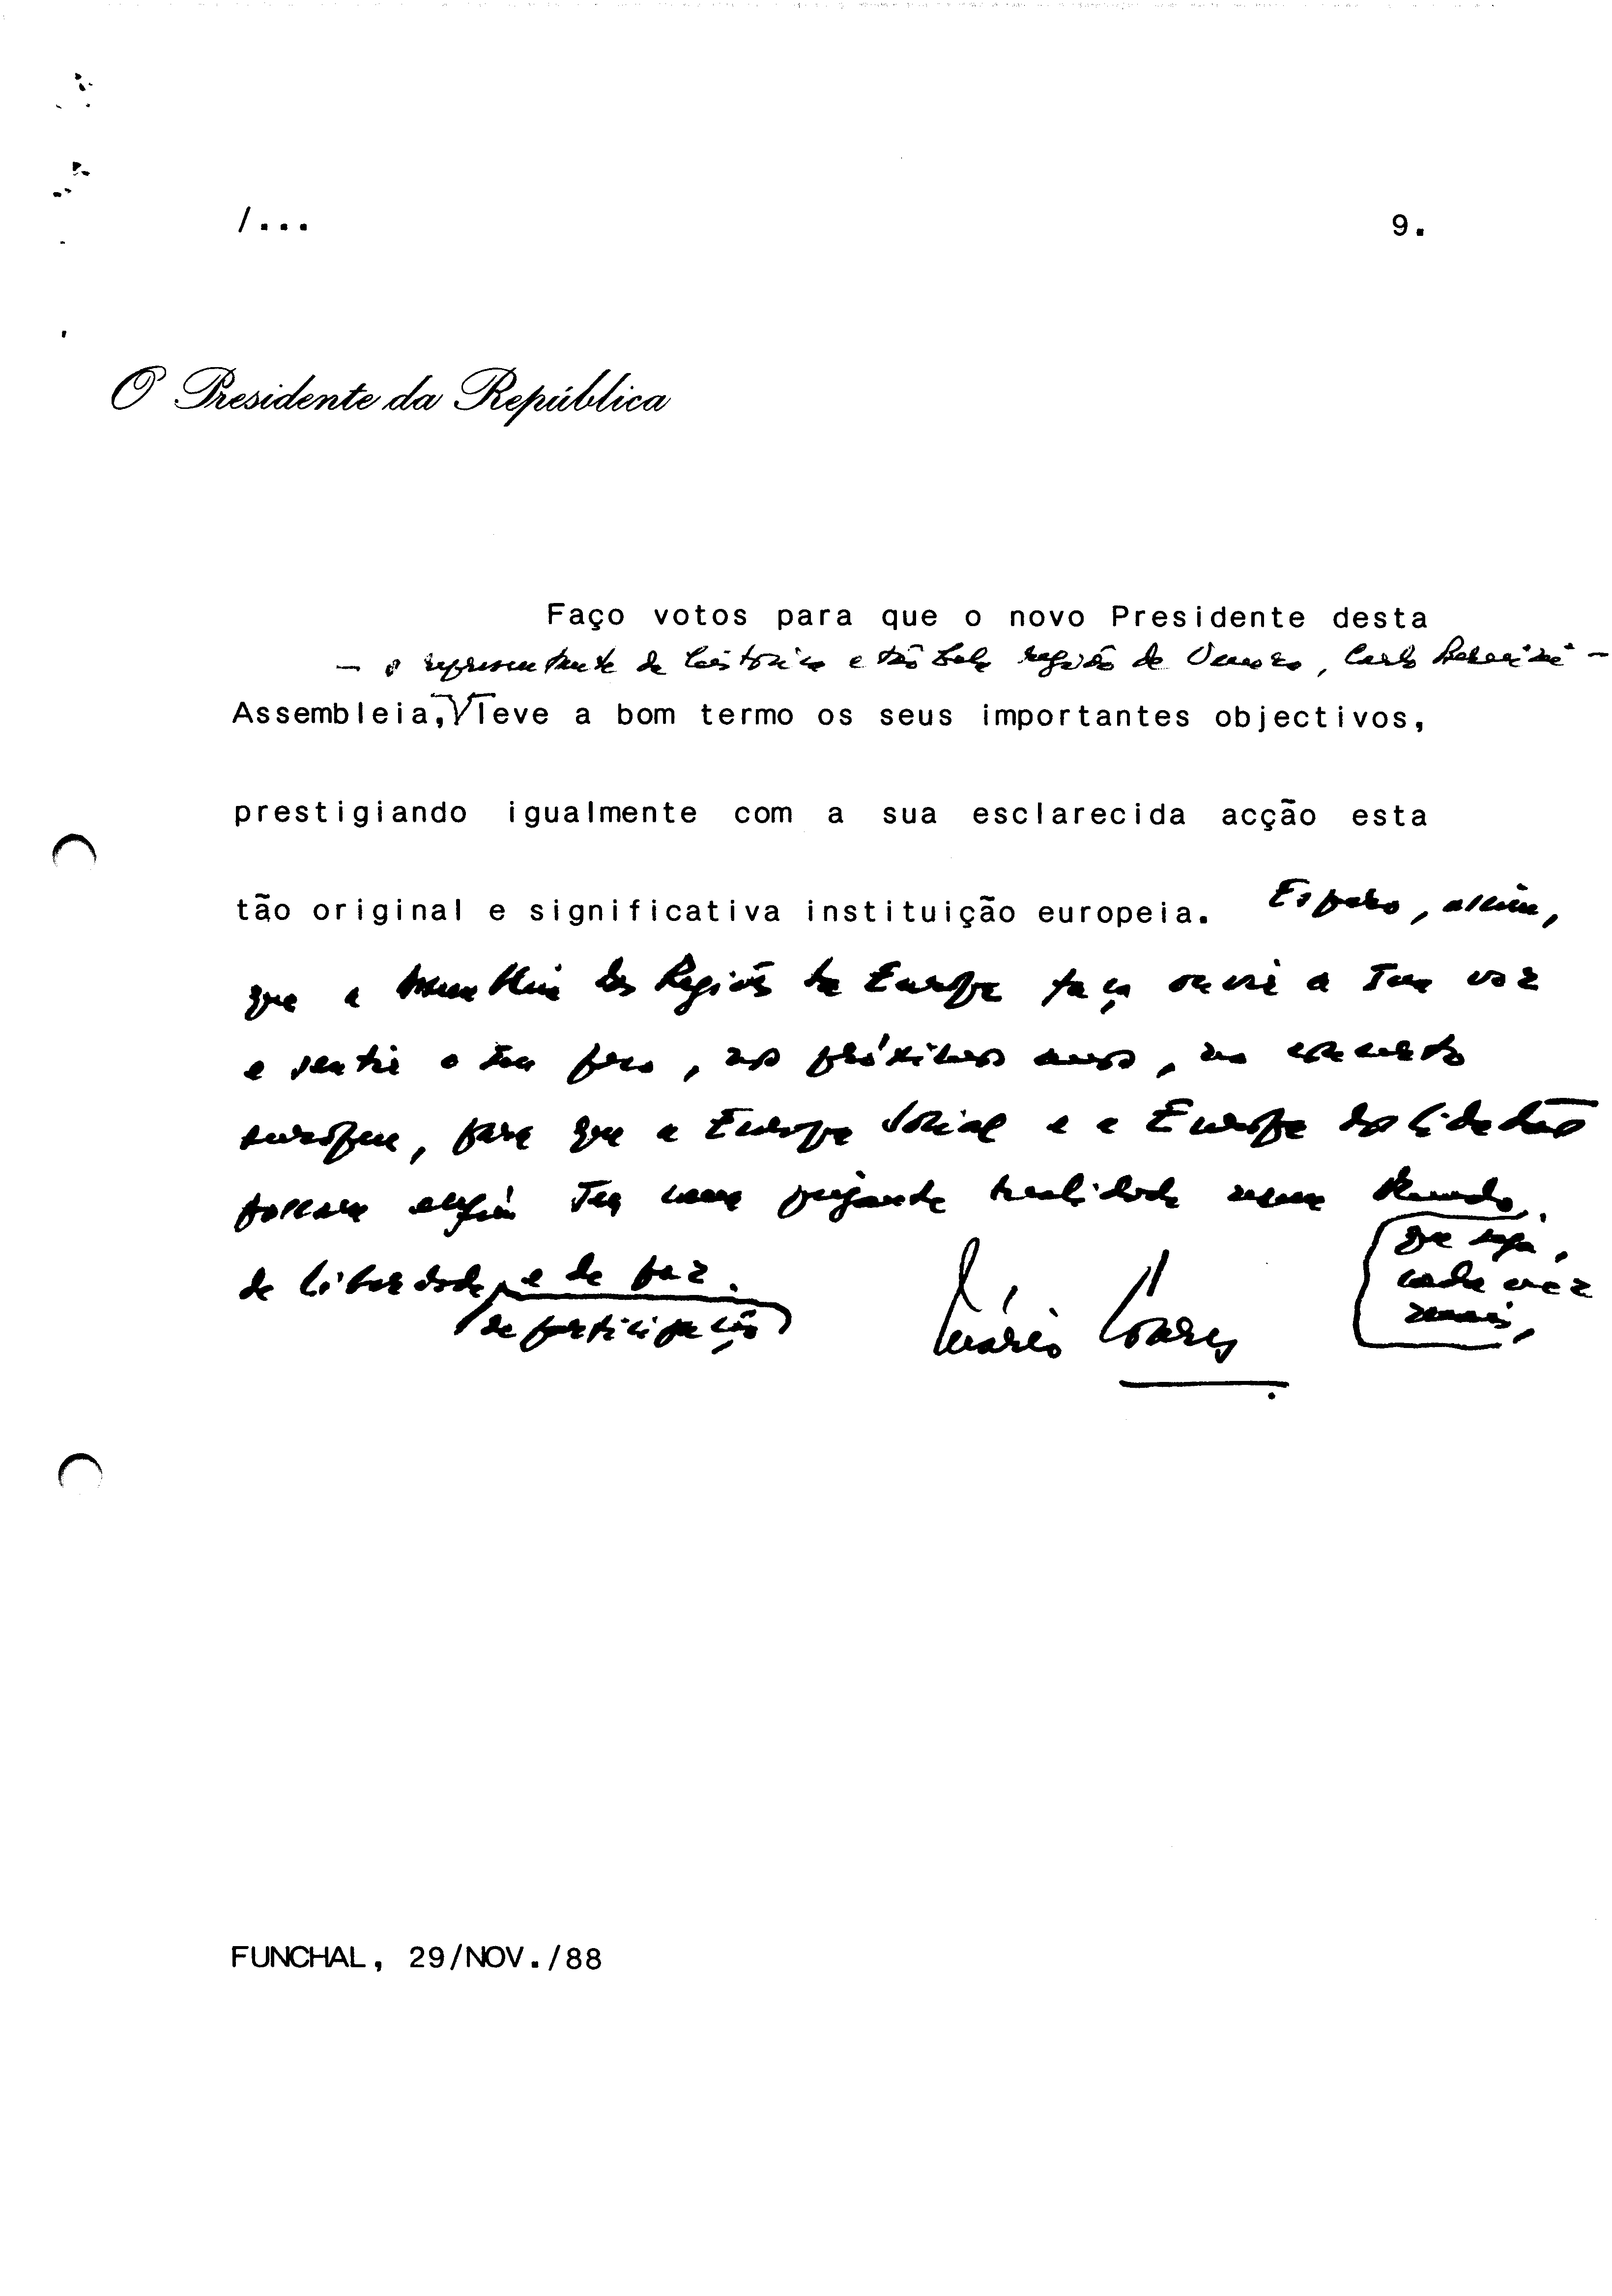 /... 9.
O Presidente da República
Faço votos para que o novo Presidente desta
— o representante da histórica e tão bela região de Veneza, Carlo Bernini —
Assembleia, leve a bom termo os seus importantes objectivos,
prestigiando igualmente com a sua esclarecida acção esta
tão original e significativa instituição europeia. Espero, assim,
que a Assembleia das Regiões da Europa faça ouvir a sua voz
e sentir o seu peso, nos próximos anos, no concerto
europeu, para que a Europa Social e a Europa dos Cidadãos
possam enfim ser uma pujante realidade num Mundo,
que seja,
cada vez
mais,
de liberdade, e de paz.
de participação
Mário Soares
FUNCHAL, 29/NOV./88